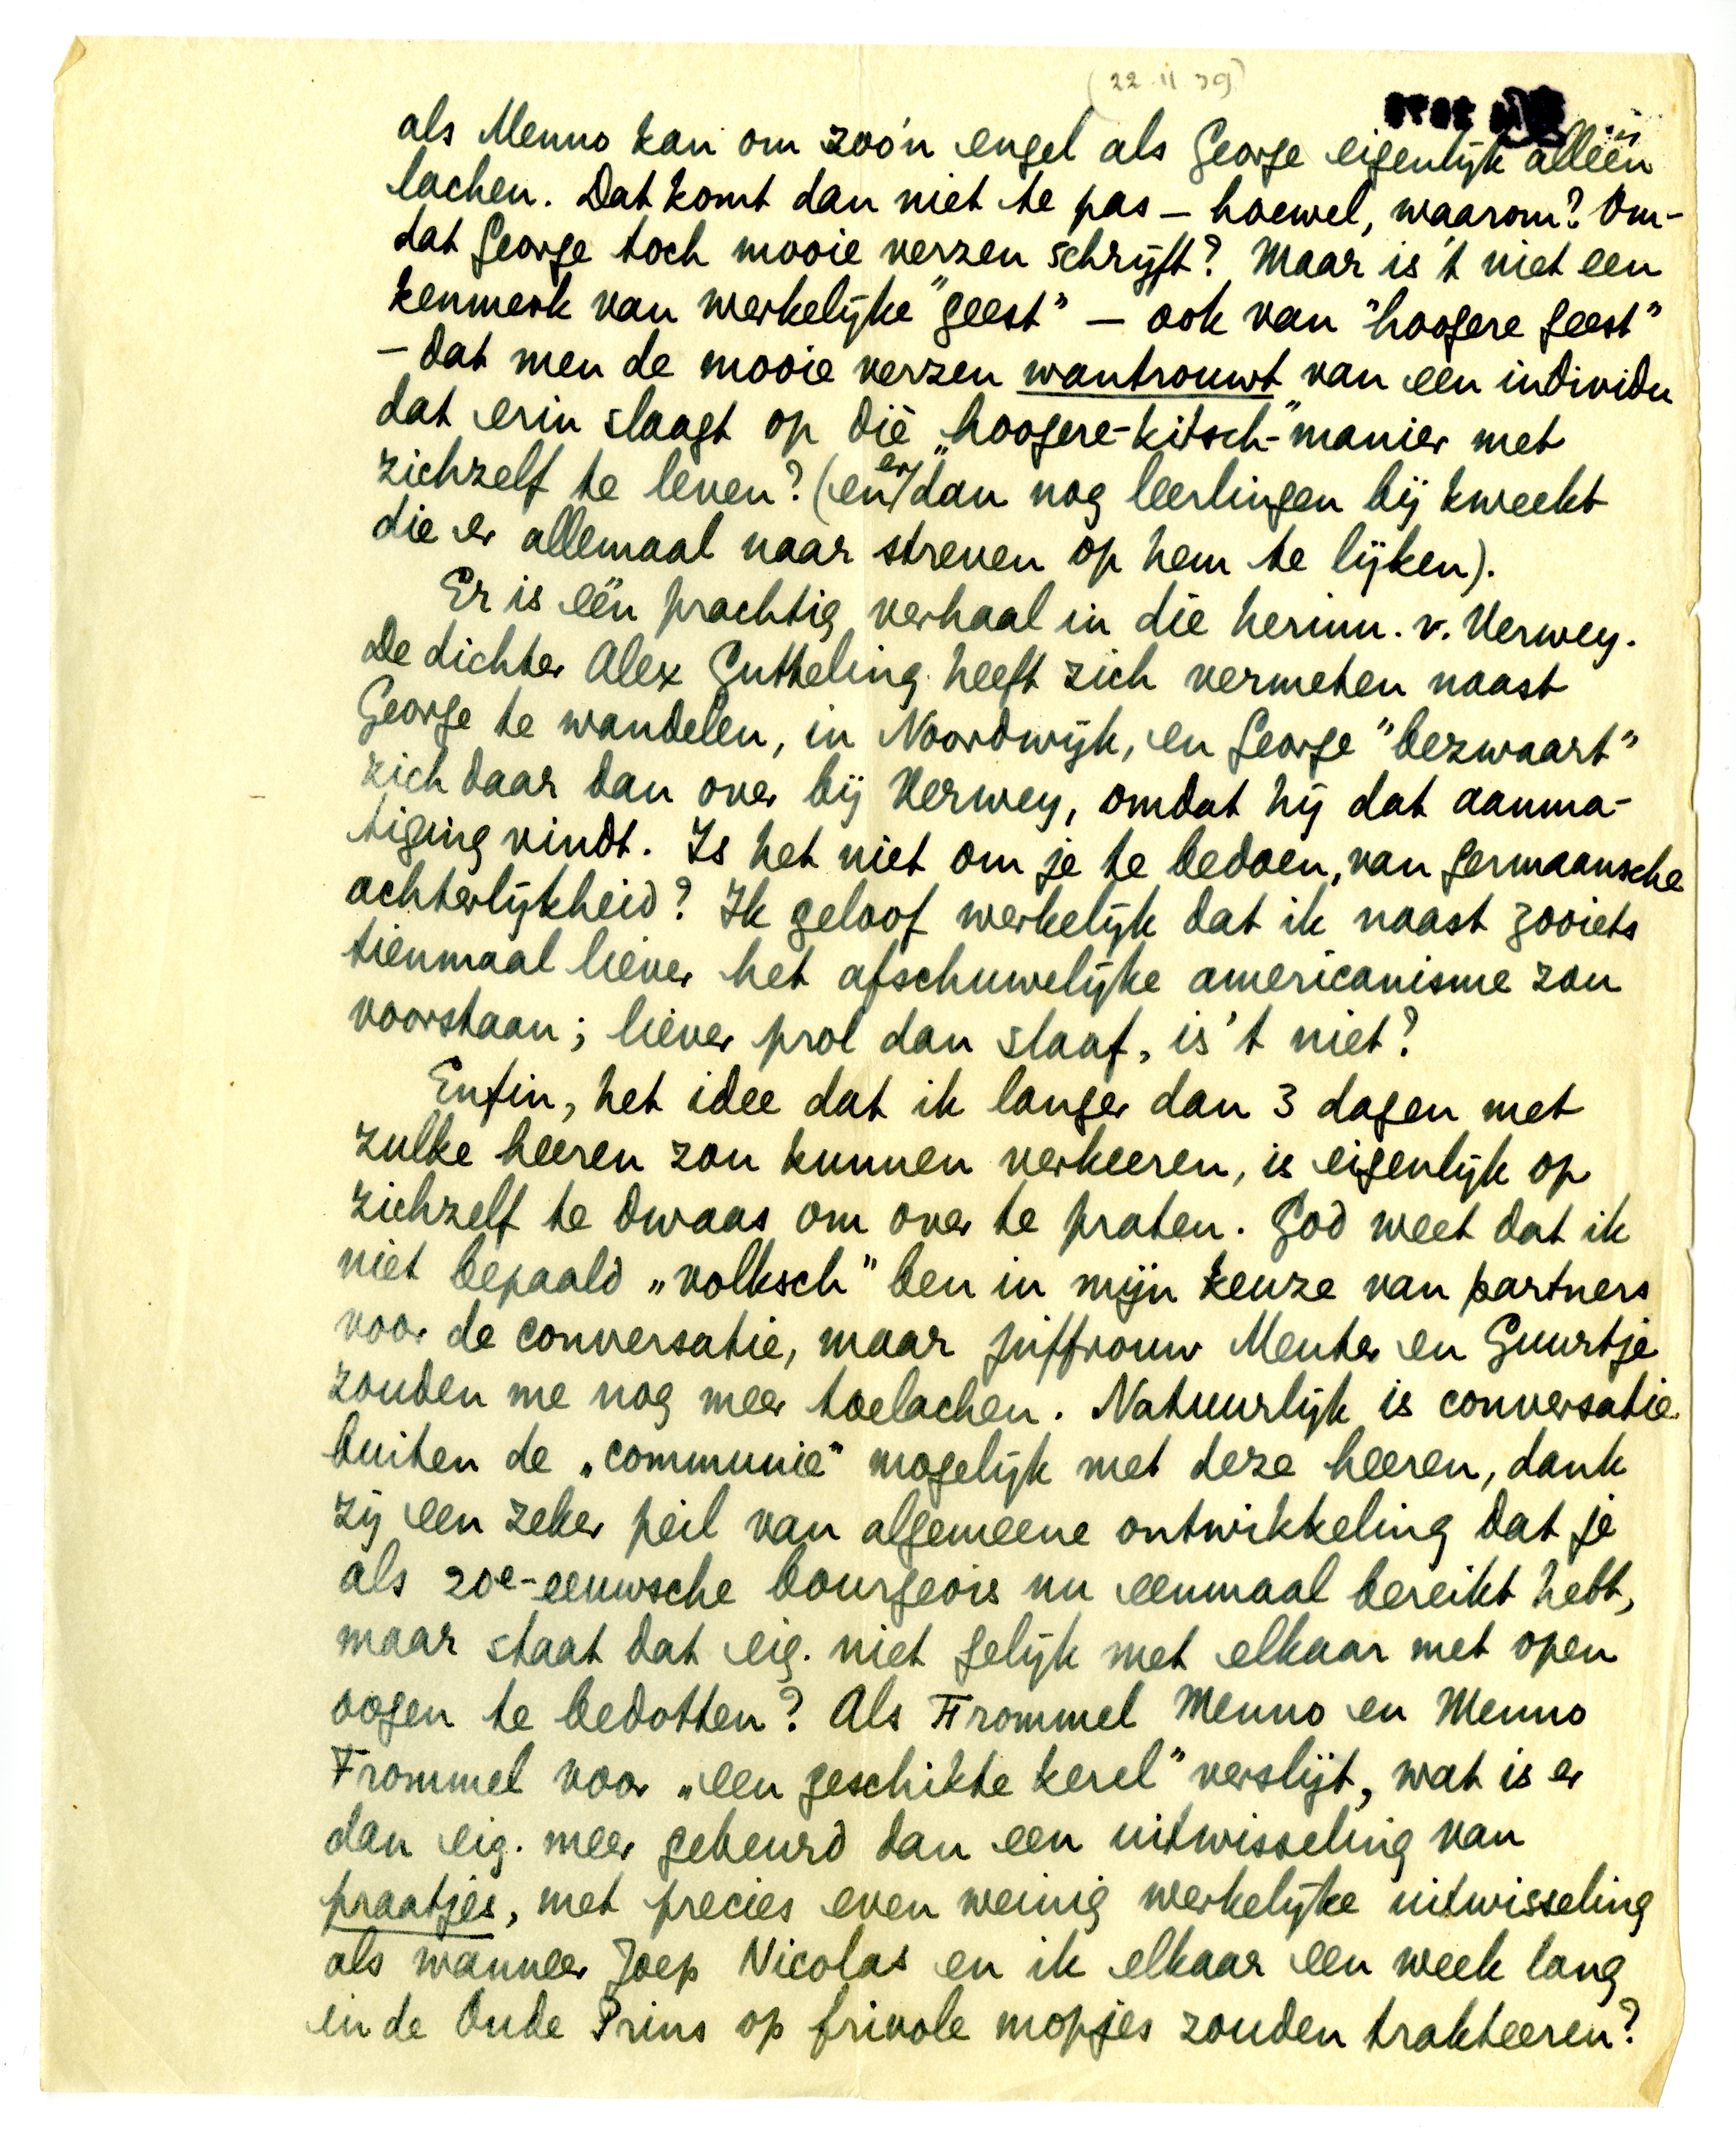 (22.11.39)
als Menno kan om zoo'n engel als George eigenlijk alleen
lachen. Dat komt dan niet te pas – hoewel, waarom? Om-
dat George toch mooie verzen schrijft? Maar is 't niet een
kenmerk van werkelijke "geest" – ook van "hoogere geest"
– dat men de mooie verzen wantrouwt van een individu
dat erin slaagt op die „hoogere-kitsch-"manier met
zichzelf te leven? (en er dan nog leerlingen bij kweekt
die er allemaal naar streven op hem te lijken).
Er is één prachtig verhaal in die herinn. v. Verwey.
De dichter Alex Gutteling heeft zich vermeten naast
George te wandelen, in Noordwijk, en George "bezwaart"
zich daar dan over bij Verwey, omdat hij dat aanma-
tiging vindt. Is het niet om je te bedoen, van germaansche
achterlijkheid? Ik geloof werkelijk dat ik naast zooiets
tienmaal liever het afschuwelijke americanisme zou
voorstaan; liever prol dan slaaf, is 't niet?
Enfin, het idee dat ik langer dan 3 dagen met
zulke heeren zou kunnen verkeeren, is eigenlijk op
zichzelf te dwaas om over te praten. God weet dat ik
niet bepaald „volksch" ben in mijn keuze van partners
voor de conversatie, maar juffrouw Menter en Guurtje
zouden me nog meer toelachen. Natuurlijk is conversatie
buiten de „communie" mogelijk met deze heeren, dank
zij een zeker peil van algemeene ontwikkeling dat je
als 20e-eeuwsche bourgeois nu eenmaal bereikt hebt,
maar staat dat eig. niet gelijk met elkaar met open
oogen te bedotten? Als Frommel Menno en Menno
Frommel voor „een geschikte kerel" verslijt, wat is er
dan eig. meer gebeurd dan een uitwisseling van
praatjes, met precies even weinig werkelijke uitwisseling
als wanneer Joep Nicolas en ik elkaar een week lang
in de Oude Prins op frivole mopjes zouden trakteeren?